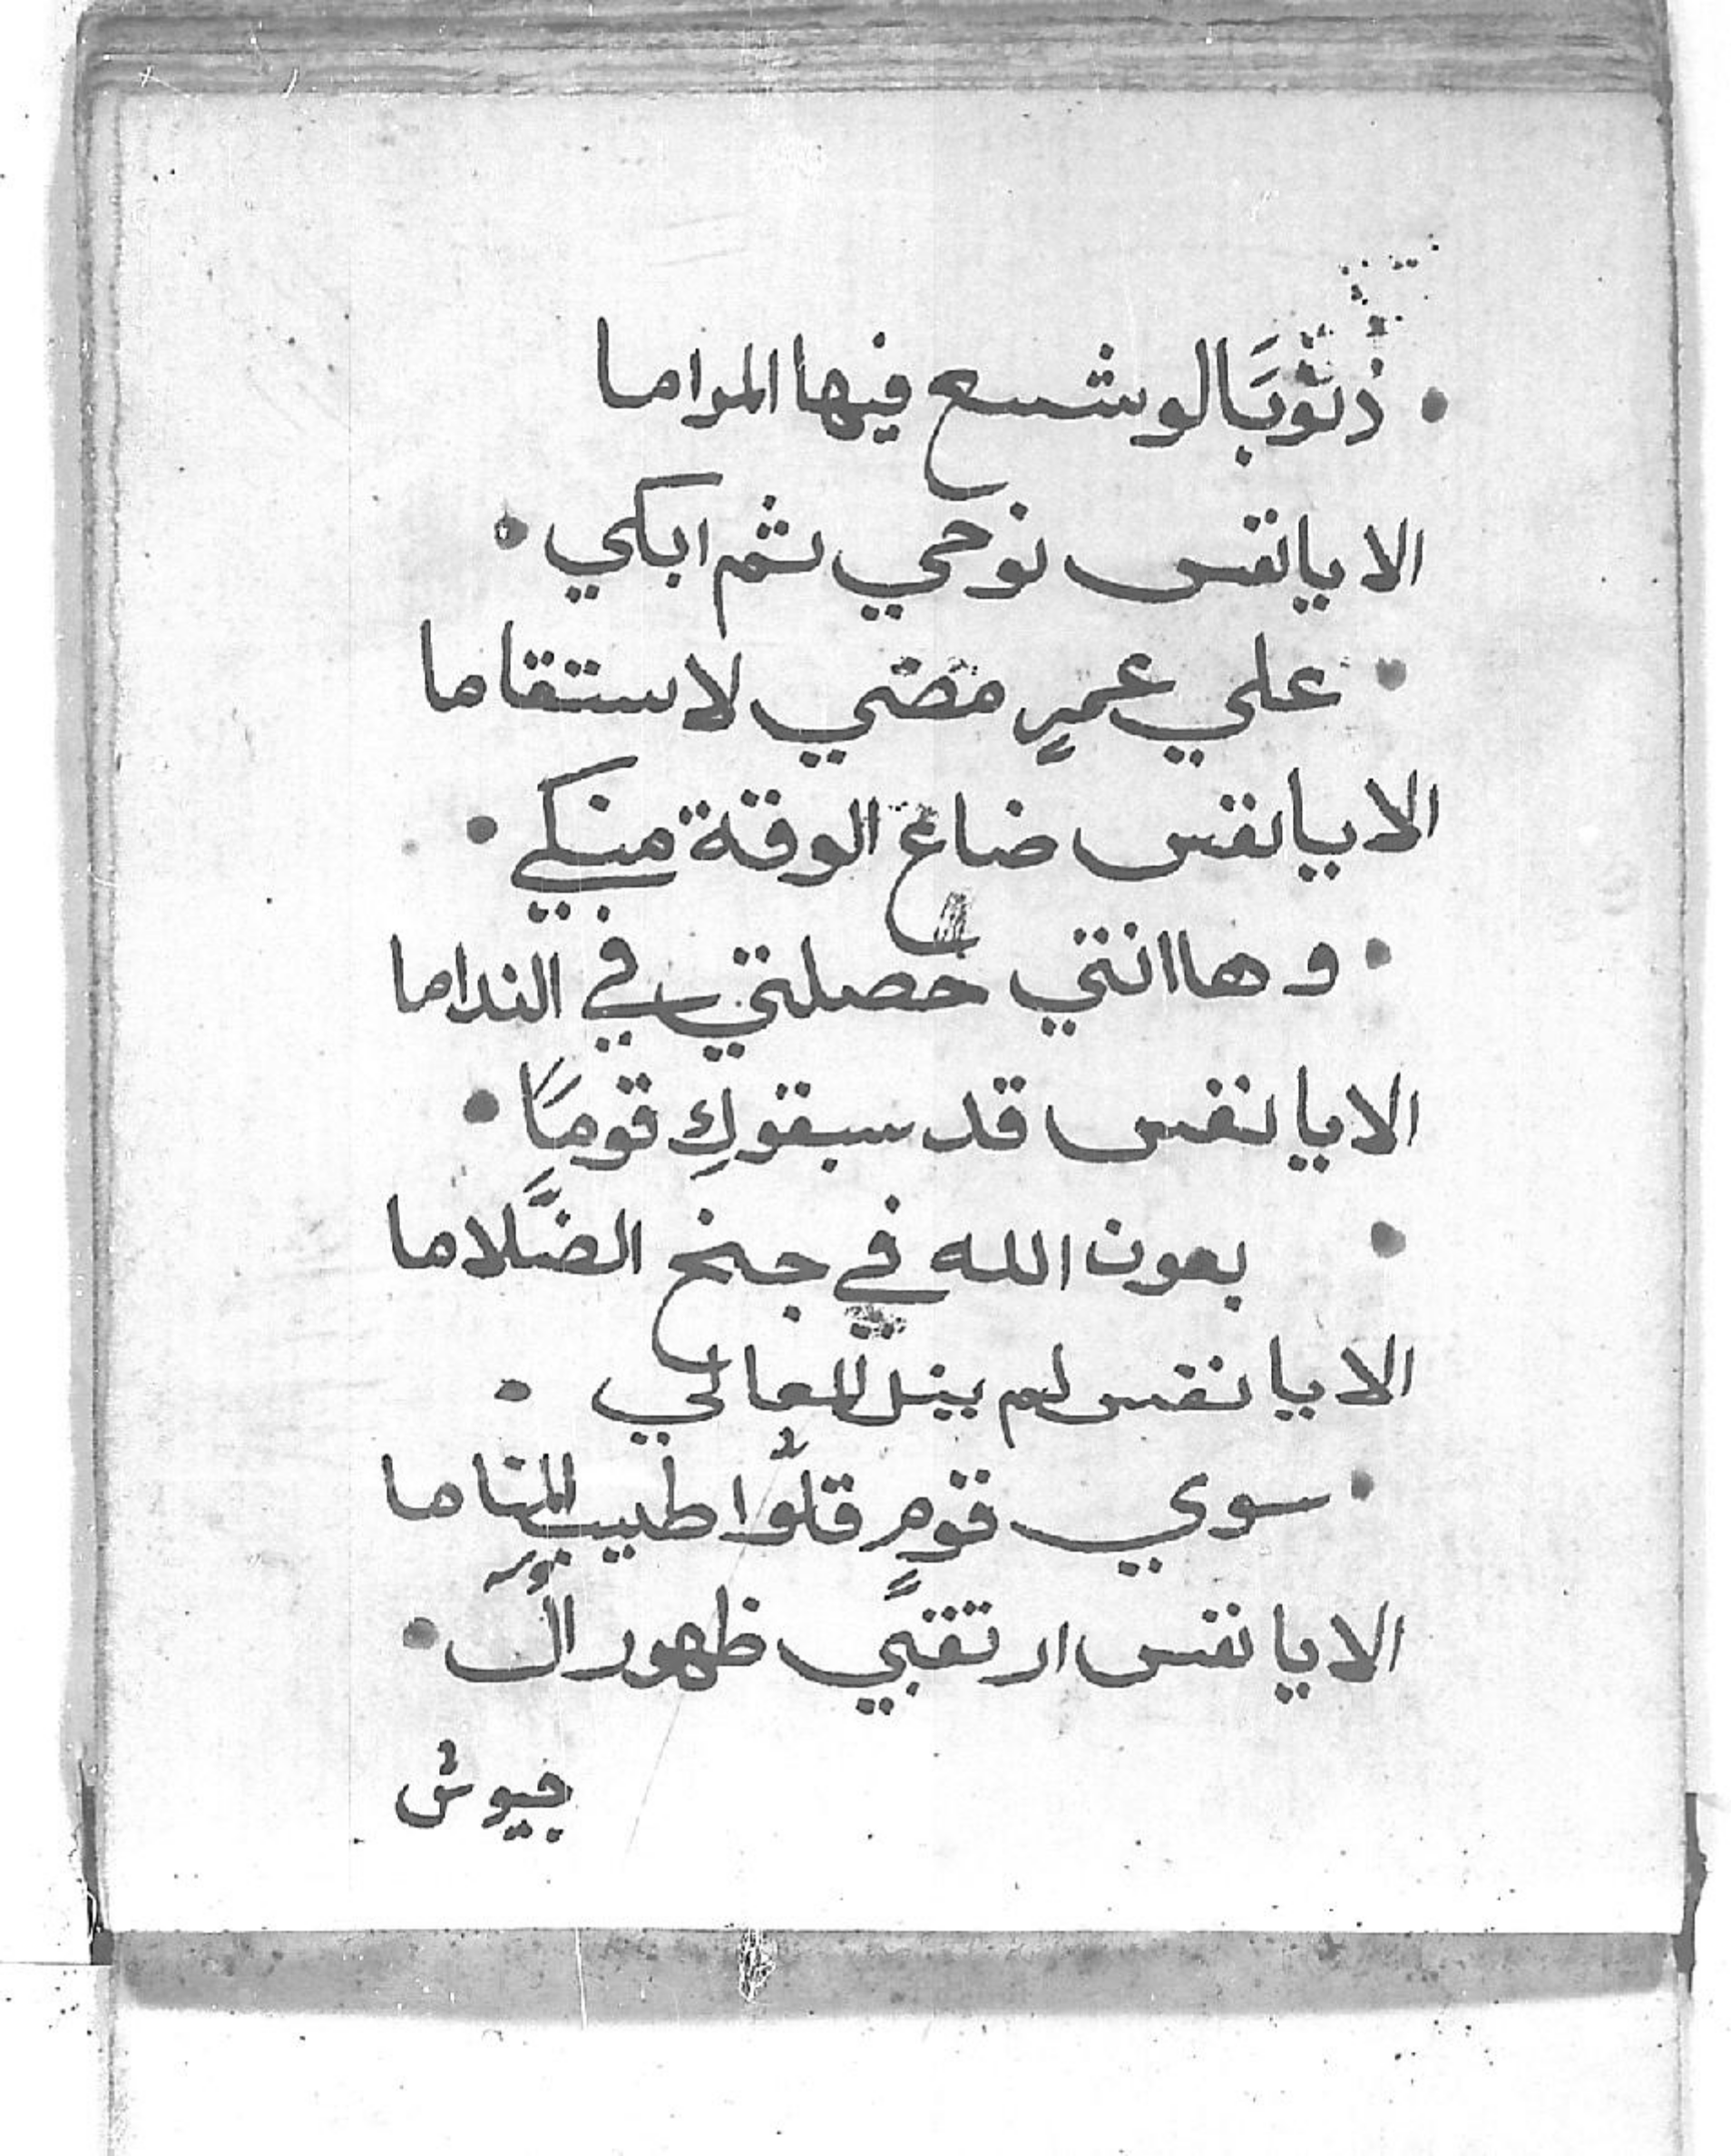 ذنوبًا لو شسع فيها المراما
الا يا نفس نوحي ثم ابكي
علي عمرٍ مضي لا ستقاما
الا يا نفس ضاع الوقة منكي
وها انتي حصلتي في النداما
الا يا نفس قد سبقوكِ قومًا
بعون الله في جنح الضّلاما
الا يا نفس لم ينل المعالي
سوي قومٍ قلوا طيب المناما
الا يا نفس ارتقبي ظهور ال
جيوش